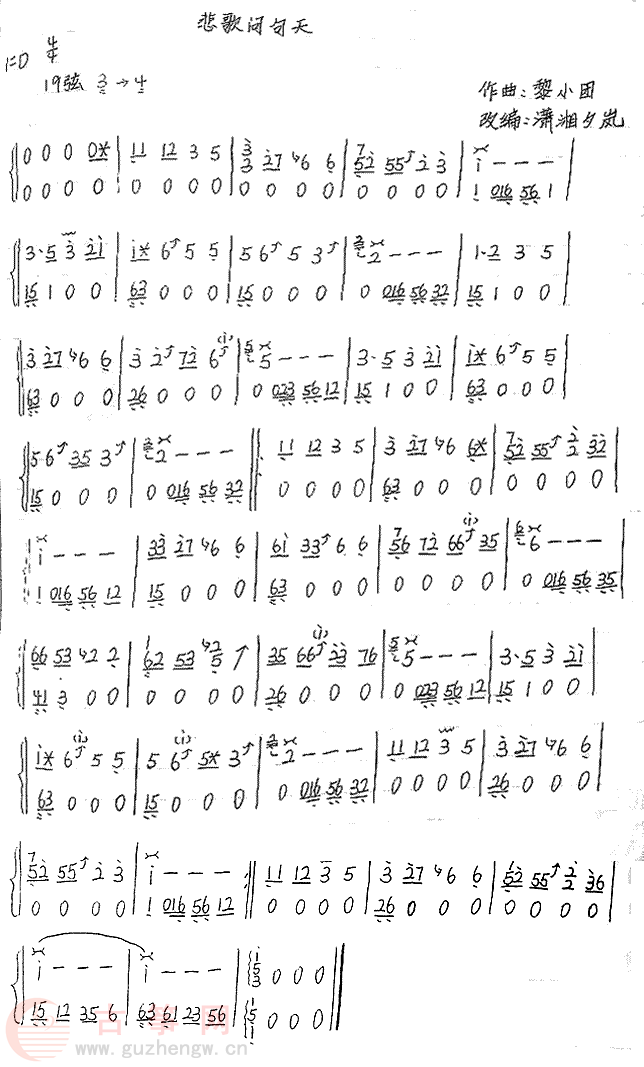 悲歌问句天
1=D 4/4
19弦 3→4
作曲:黎小团
改编:潇湘夕岚
0 0 0 0* | 11 12 3 5 |
0 0 0 0 | 0 0 0 0 |
3·5 3 21 | 1* 6 5 5 | 5 6 5 3 | 2 - - - | 1·2 3 5
15 1 0 0 | 63 0 0 0 | 15 0 0 0 | 0 016 56 32 | 15 1 0 0
3 27 6 6 | 3 2 72 6 | 5 - - - | 3·5 3 21 | 1* 6 5 5
63 0 0 0 | 26 0 0 0 | 0 023 56 12 | 15 1 0 0 | 63 0 0 0
56 35 3 | 2 - - - | 11 12 3 5 | 3 27 6 6*
15 0 0 0 | 0 016 56 32 | 0 0 0 0 | 63 0 0 0 | 0 0 0 0
1 - - - | 33 27 6 6 | 61 33 6 6 | 56 72 66 35 | 6 - - -
1 016 56 12 | 15 0 0 0 | 63 0 0 0 | 0 0 0 0 | 0 016 56 35
66 53 2 2 | 62 53 5 | 35 66 33 76 | 5 - - - | 3·5 3 21
41 3 0 0 | 0 0 0 0 | 26 0 0 0 | 0 023 56 12 | 15 1 0 0
1* 6 5 5 | 5 6 5* 3 | 2 - - - | 11 12 3 5 | 3 27 6 6
63 0 0 0 | 15 0 0 0 | 0 016 56 32 | 0 0 0 0 | 26 0 0 0
52 55 2 3 | 1 - - - | 11 12 3 5 | 3 27 6 6 | 52 55 2 36
0 0 0 0 | 1 016 56 12 | 0 0 0 0 | 26 0 0 0 | 0 0 0 0
1 - - - | 1 - - - | 0 0 0
15 12 35 6 | 63 61 23 56 | 0 0 0
古筝网
www.guzhengw.cn